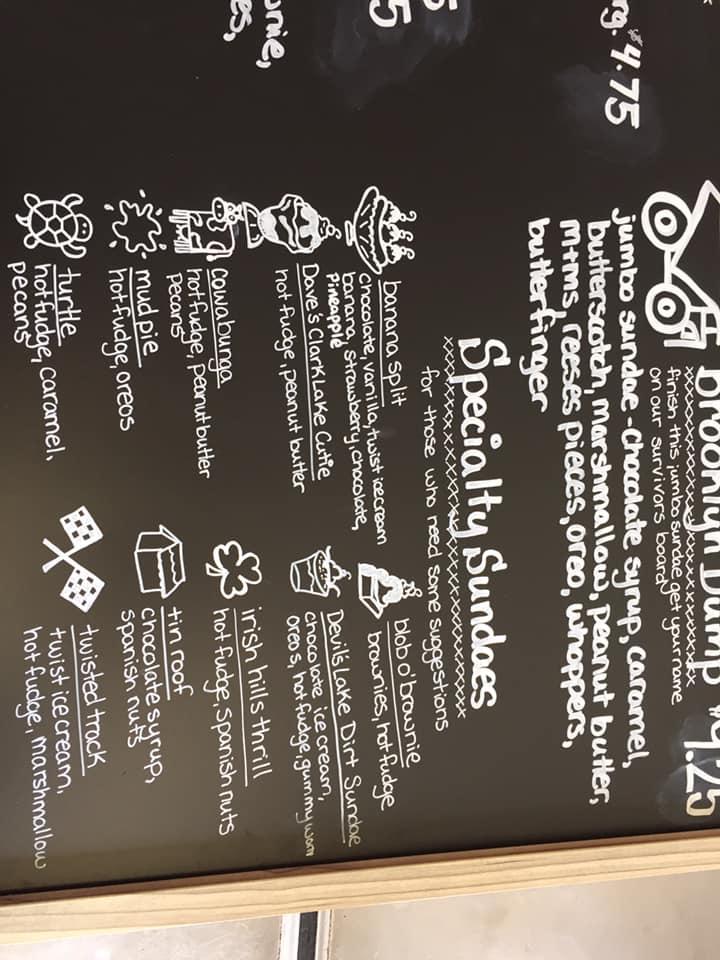 $4.75
5
Brooklyn Dump
xxxxxxxxxxxxxxxxxxxxxxx
finish this jumbo sundae get your name
on our survivors board
jumbo sundae - chocolate syrup, caramel,
butterscotch, marshmallow, peanut butter,
m+ms, reeses pieces, oreo, whoppers,
butterfinger
Specialty Sundaes
xxxxxxxxxxxxxxxxxxxxxxxxxxxxx
for those who need some suggestions
banana split
chocolate, vanilla, twist icecream
banana, strawberry, chocolate,
pineapple
Dave's Clark Lake Cutie
hot fudge, peanut butter
cowabunga
hot fudge, peanut butter
pecans
mud pie
hot fudge, oreos
turtle
hot fudge, caramel,
pecans
blob o' brownie
brownies, hot fudge
Devils Lake Dirt Sundae
chocolate ice cream,
oreos, hot fudge, gummy worm
irish hills thrill
hot fudge, spanish nuts
tin roof
chocolate syrup,
spanish nuts
twisted track
twist ice cream,
hot fudge, marshmallow